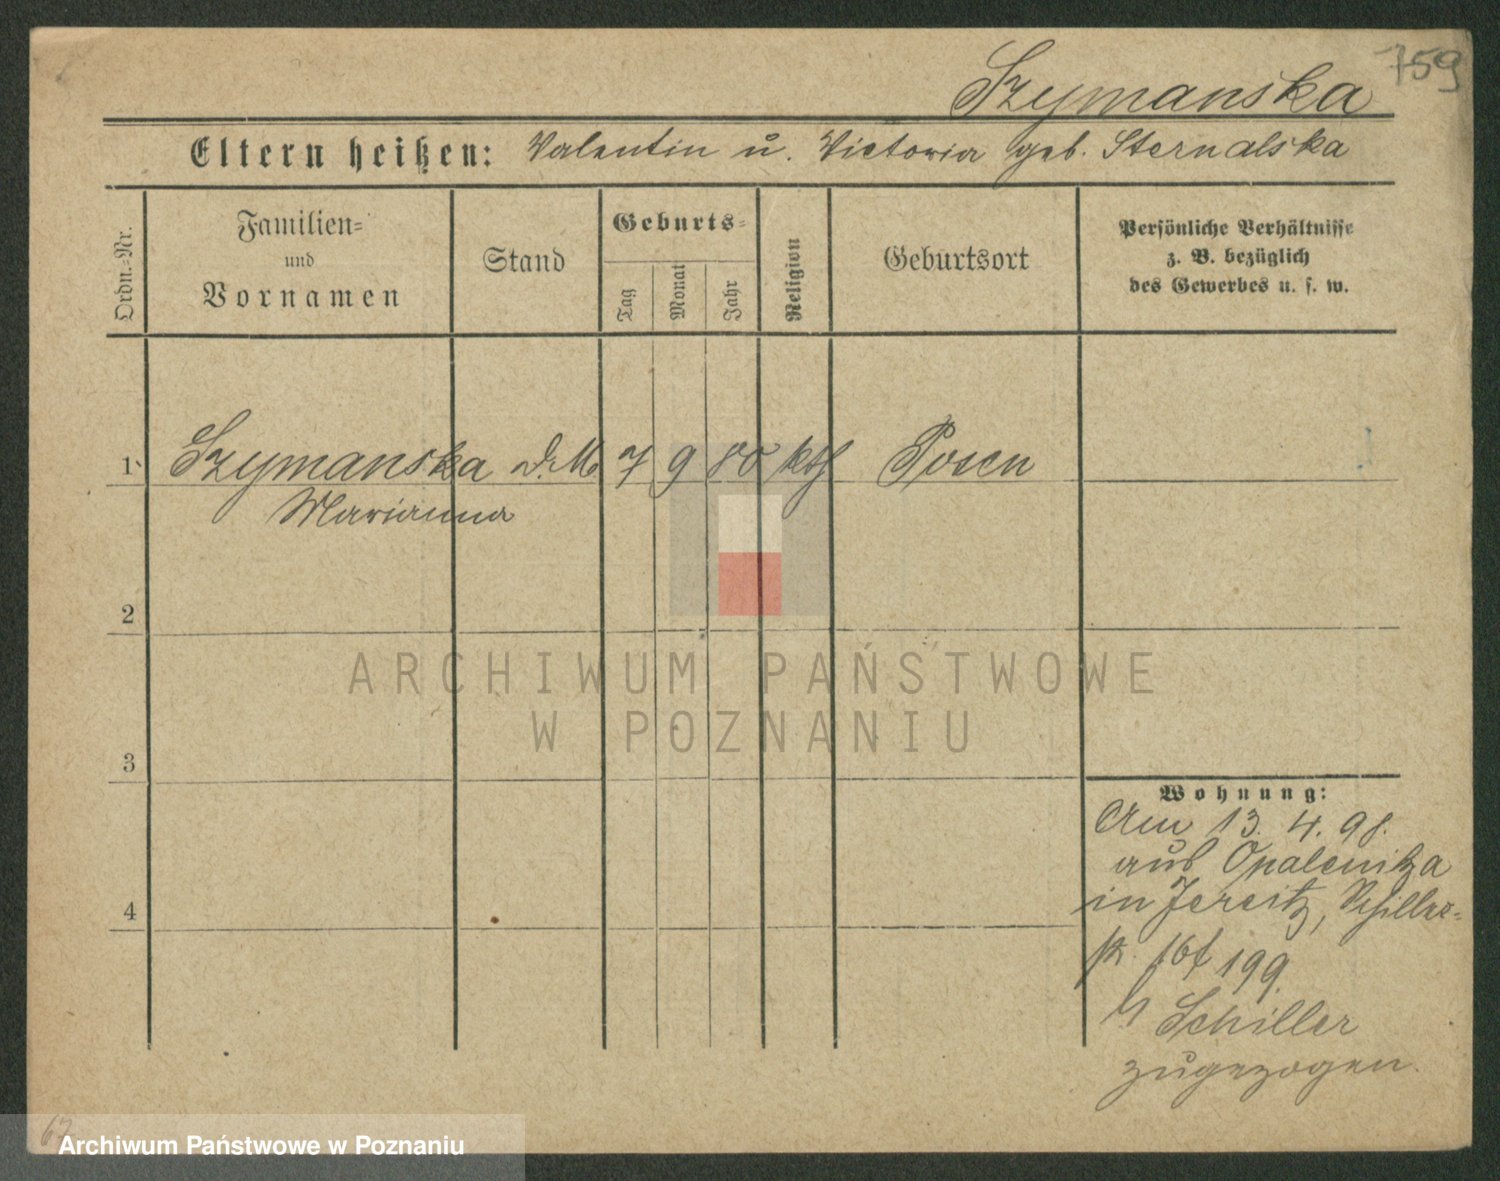 759
Szymanska
Eltern heißen: Valentin u. Victoria geb. Sternalska
Ordn.-Nr.
Familien-
und
Vornamen
Stand
Geburts-
Tag
Monat
Jahr
Religion
Geburtsort
Persönliche Verhältnisse
z. B. bezüglich
des Gewerbes u. s. w.
1 Szymanska D.M. 7 9 80 kth Posen
Marianna
2
3
4
Wohnung:
Am 13. 4. 98.
aus Opalenitza
in Jersitz, Schiller-
str. 16 f 199
Schiller
zugezogen.
ARCHIWUM PAŃSTWOWE
W POZNANIU
Archiwum Państwowe w Poznaniu